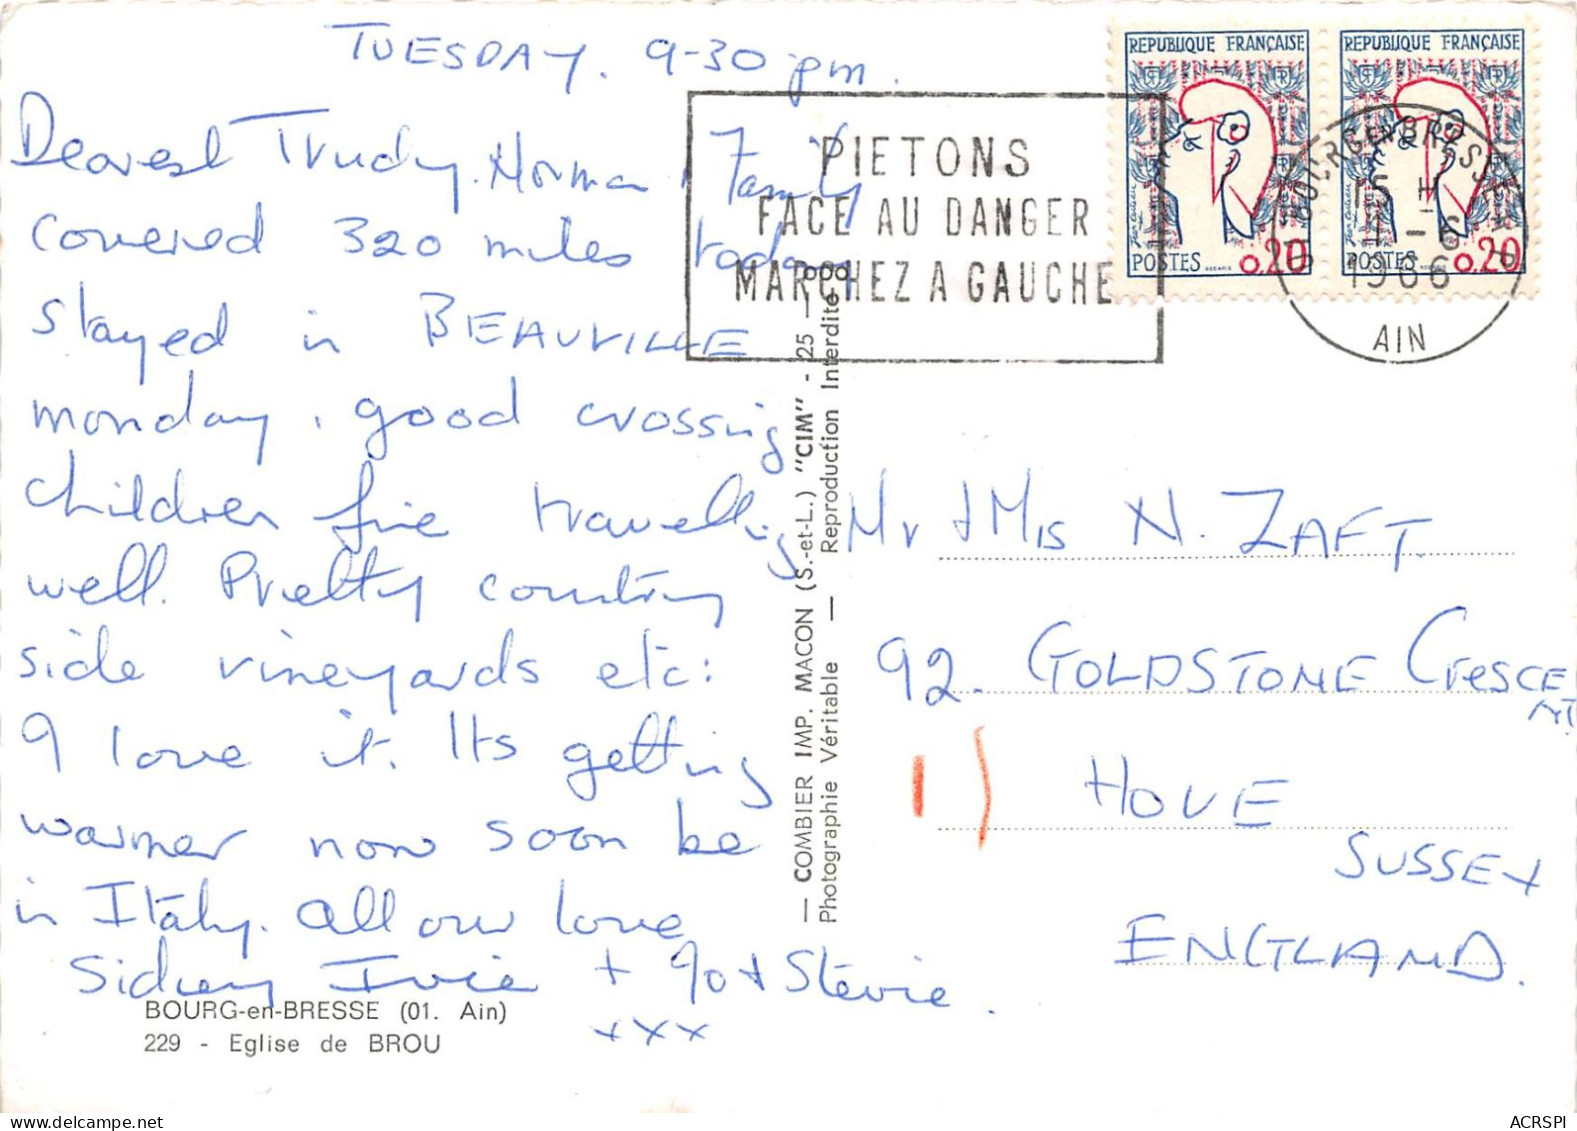 TUESDAY. 9-30 pm.
Dearest Trudy. Norman, Family
Covered 320 miles today
stayed in BEAUVILLE
monday, good crossing
children fine travelling
well. Pretty country
side vineyards etc:
I love it. Its getting
warmer now soon be
in Italy. All our love
Sidney Ivie + Jo + Stevie.
xxx
BOURG-en-BRESSE (01. Ain)
229 - Eglise de BROU
— COMBIER IMP. MACON (S.-et-L.) "CIM" - 25 —
Photographie Véritable — Reproduction Interdite
PIETONS
FACE AU DANGER
MARCHEZ A GAUCHE
REPUBLIQUE FRANÇAISE
POSTES 0.20
REPUBLIQUE FRANÇAISE
POSTES 0.20
BOURG EN BRESSE
15 H
11 - 6
1966
AIN
Mr & Mrs N. ZAFT.
92. GOLDSTONE CrescENT
HOVE
SUSSEX
ENGLAND.
www.delcampe.net
ACRSPI